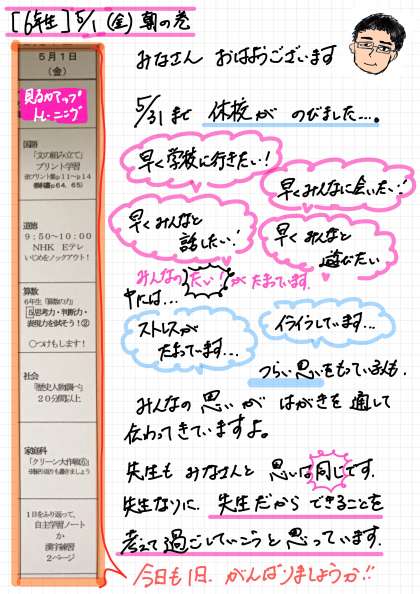 [6年生] 5/1 (金) 朝の巻
みなさん おはようございます
5/31まで 休校が のびました…。
早く学校に行きたい!
早くみんなに会いたい!
早くみんなと
話したい!
早くみんなと
遊びたい
みんなの「たい!」がたまっています。
中には…
ストレスが
たまっています…
イライラしています…
つらい思いをもっている人も。
みんなの思いが はがきを通して
伝わってきていますよ。
先生も みなさんと 思いは同じです。
先生なりに、先生だから できることを
考えて過ごしていこうと思っています。
今日も1日、がんばりましょうか!!
5月1日
(金)
見る力アップ
トレーニング
国語
「文の組み立て」
プリント学習
※プリント集p11~p14
(教科書p64、65)
道徳
9:50~10:00
NHK Eテレ
いじめをノックアウト!
算数
6年生「算数の力」
5思考力・判断力・
表現力を試そう!②
○つけもします!
社会
「歴史人物調べ」
20分間以上
家庭科
「クリーン大作戦⑥」
1日をふり返って、
自主学習ノート
か
漢字練習
2ページ